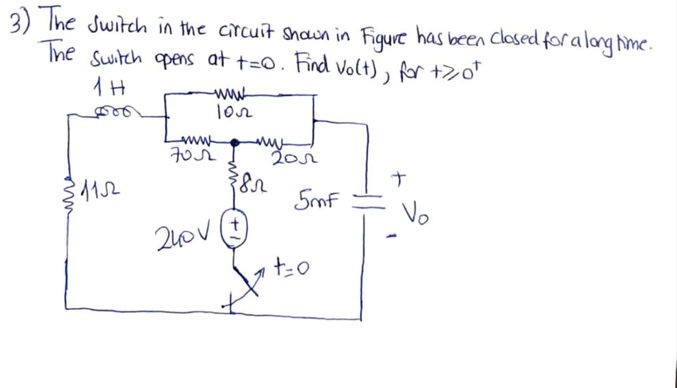 3) The switch in the circuit shown in Figure has been closed for a long time.
The switch opens at t=0. Find Vo(t), for t≥0⁺
1H
10Ω
70Ω
20Ω
11Ω
8Ω
5mF
+
Vo
-
240V
+
-
t=0